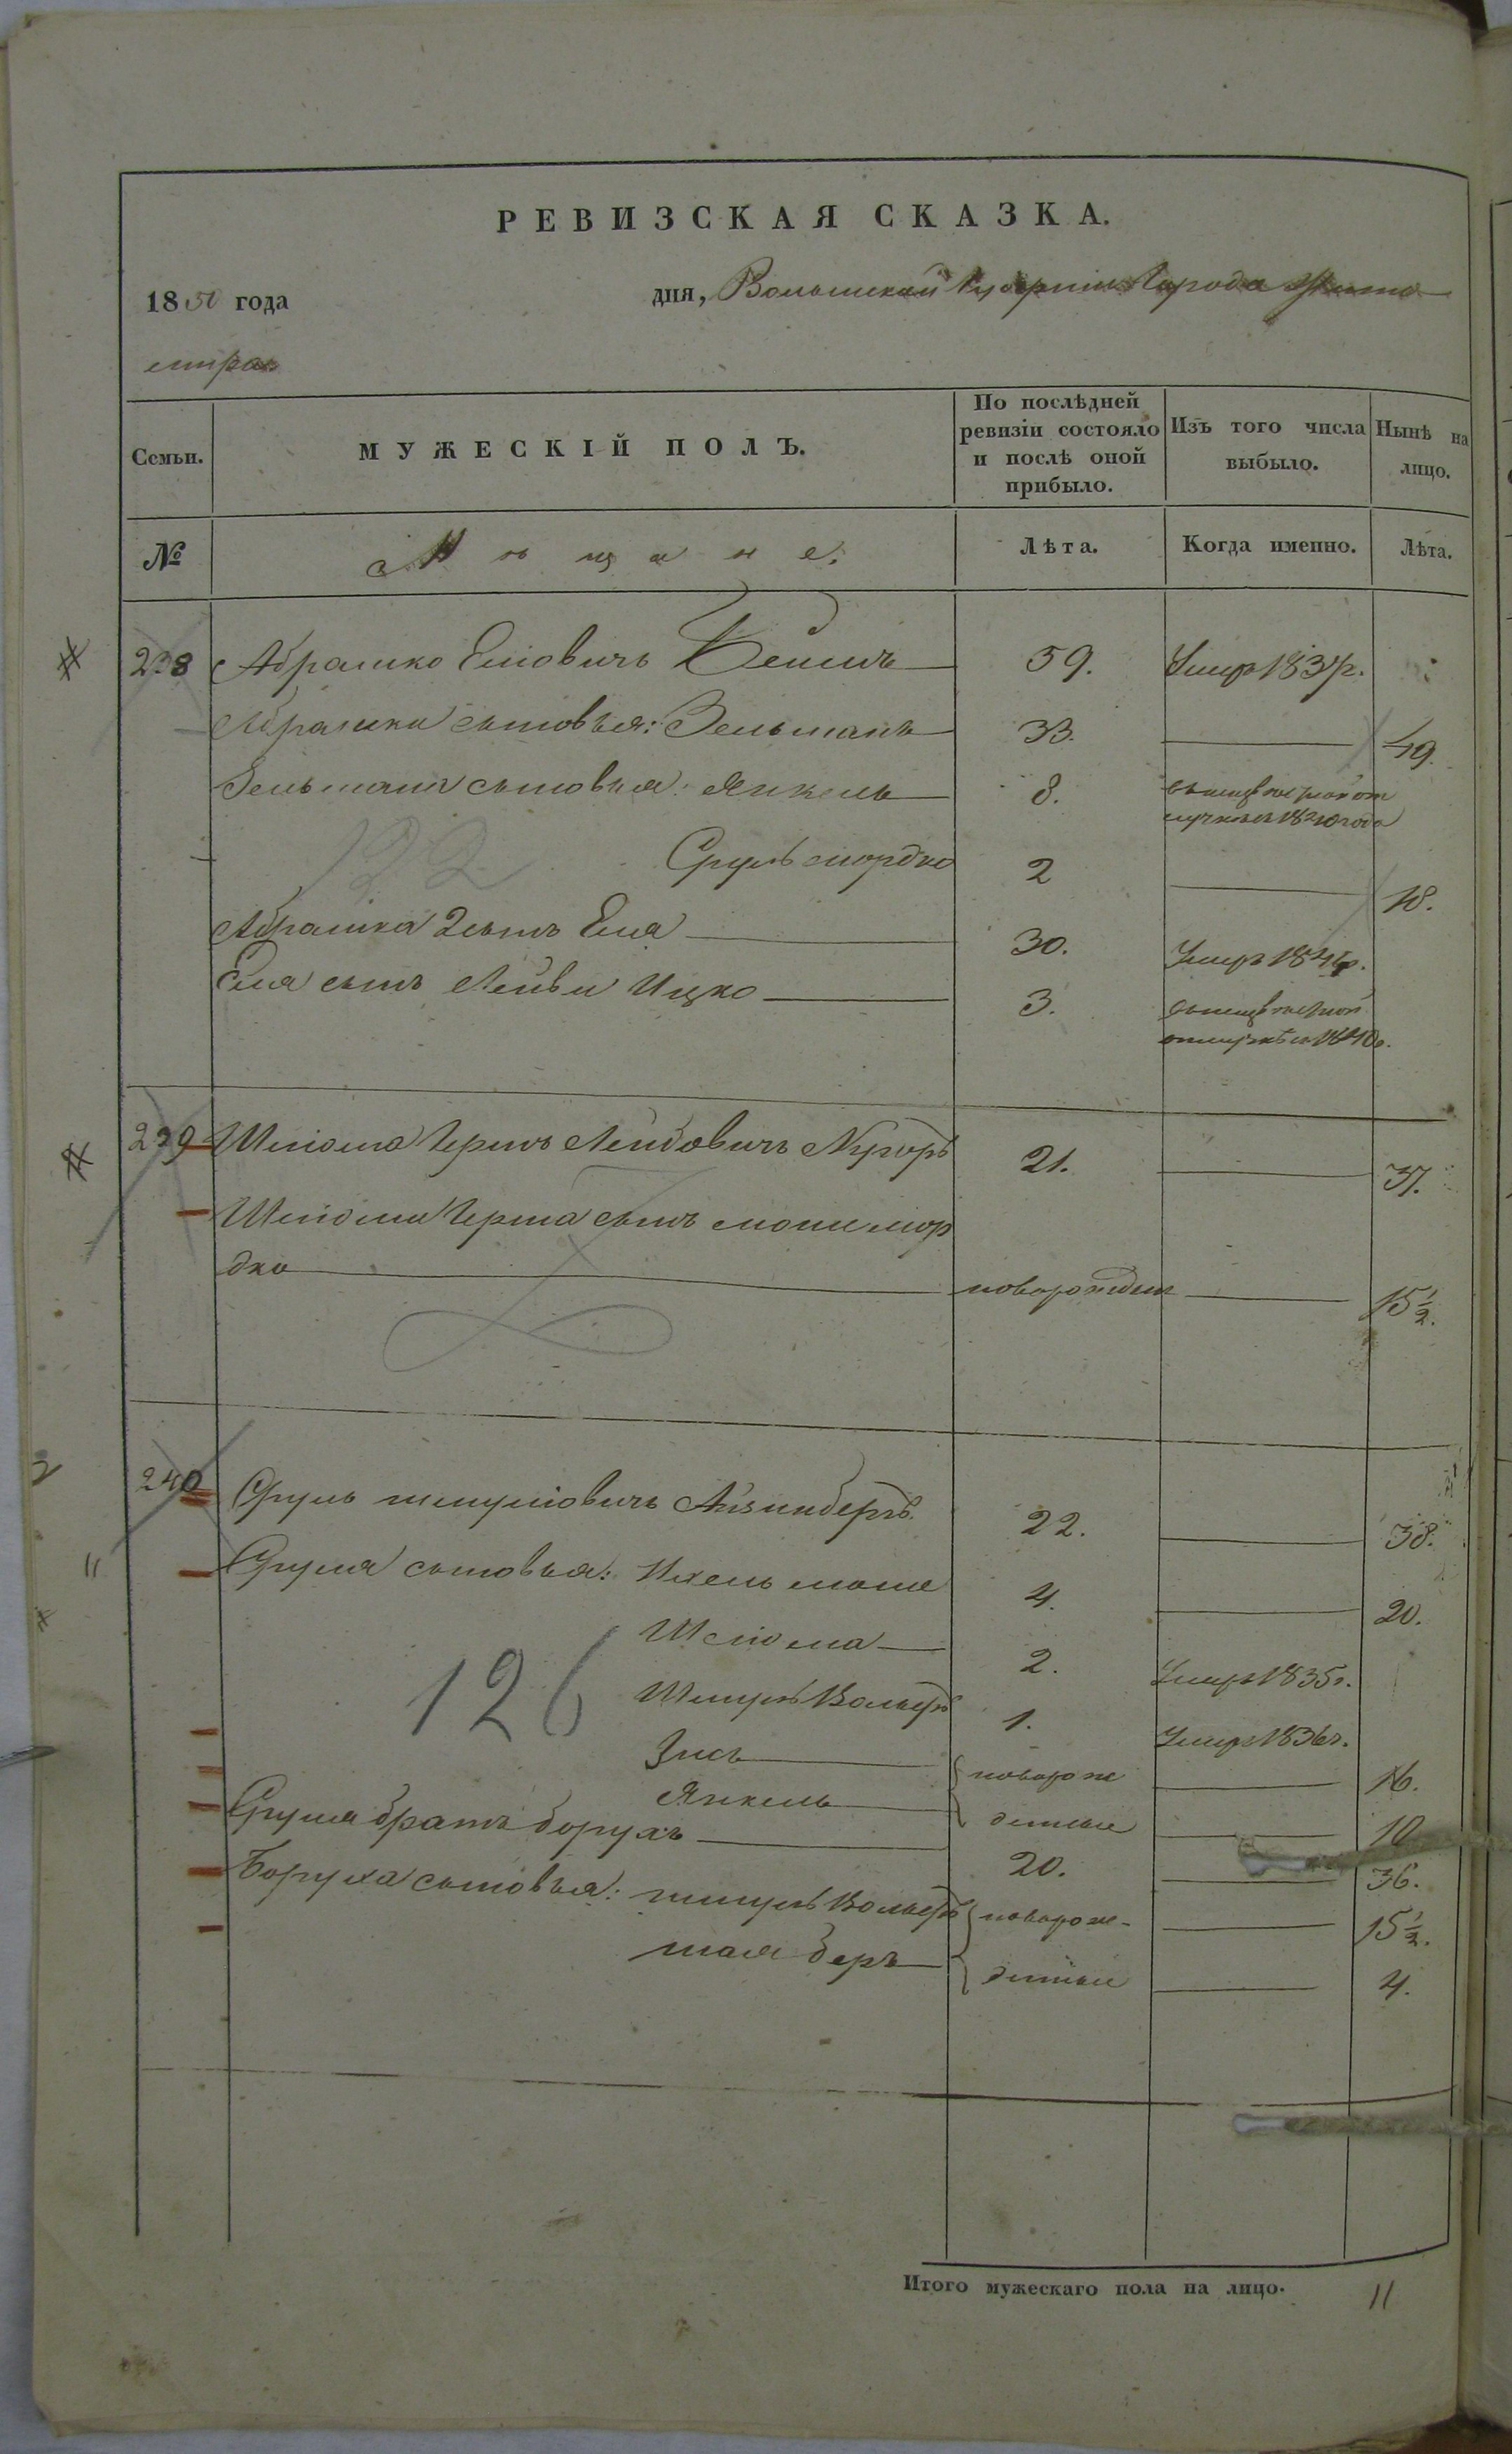 РЕВИЗСКАЯ СКАЗКА.
1850 года дня, Волынской Губернии Города Жито-
мира
Семьи. МУЖЕСКІЙ ПОЛЪ. По послѣдней ревизіи состояло и послѣ оной прибыло. Изъ того числа выбыло. Нынѣ на лицо.
№ Мѣщане: Лѣта. Когда именно. Лѣта.
238 Абрамко Елiовичъ 59. Умеръ 1837г.
Абрамка сыновья: Зельманъ 33. 49.
Зельмана сыновья: Янкель 8. 1840 года
Сруль мордко 2 18.
122
Абрамка 2 сынъ Еля 30. Умеръ 184 г.
Еля сынъ Лейви Ицко 3. 1840г.
239 Шліома Гершъ Лейбовичъ 21. 37.
Шліомы Герша сынъ моше мор
дко новорожден 15½.
240 Сруль шмуліовичъ Айзинбергъ. 22. 38.
Сруля сыновья: Ихель моше 4. 20.
Шліома 2. Умеръ 1835г.
126
Шмуль Вольфъ 1. Умеръ 1836г.
Зись новорож 16.
Янкель денные 10
Сруля братъ борухъ 20. 36.
Боруха сыновья: шмуль Вольфъ новорож- 15½.
шая беръ денные 4.
Итого мужескаго пола на лицо. 11